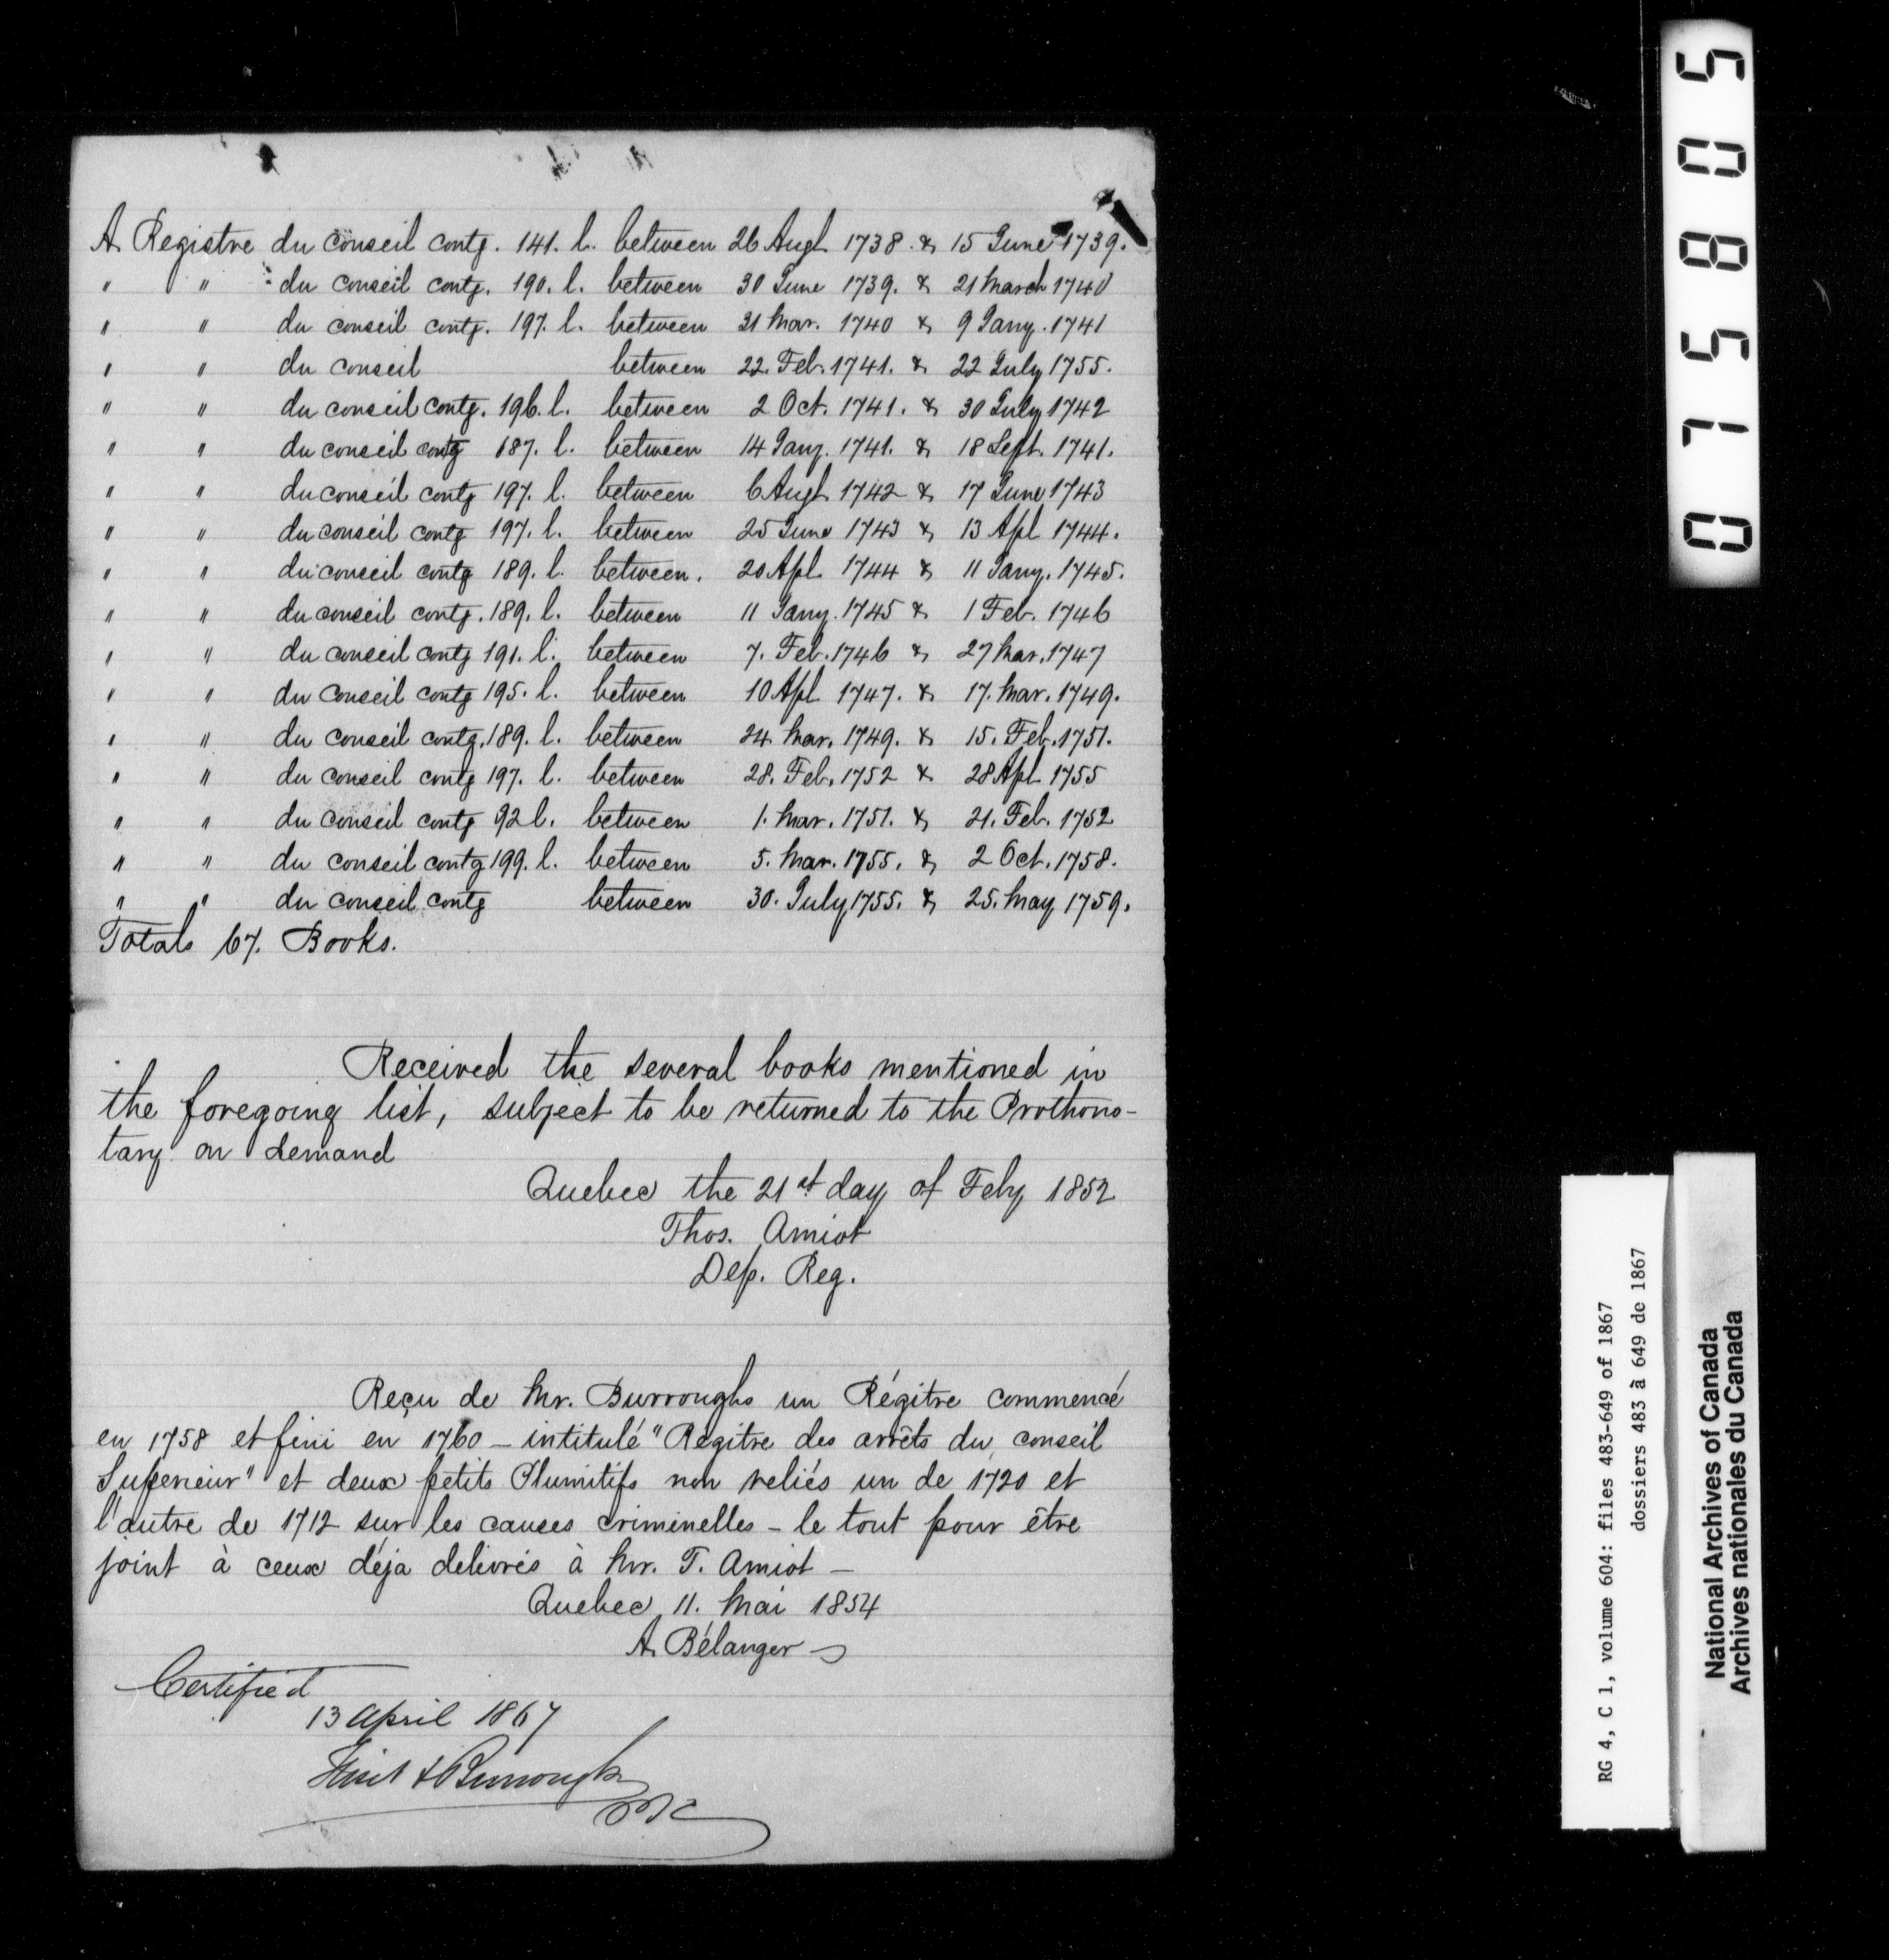 A Registre du conseil contg. 141. l. between 26 Augt 1738. & 15 June 1739.
" " du conseil contg. 190. l. between 30 June 1739. & 21 March 1740
" " du conseil contg. 197. l. between 31 Mar. 1740 & 9 Jany. 1741
" " du conseil between 22. Feb. 1741. & 22 July 1755.
" " du conseil contg. 196. l. between 2 Oct. 1741. & 30 July 1742
" " du conseil contg 187. l. between 14 Jany. 1741. & 18 Sept. 1741.
" " du conseil contg 197. l. between 6 Augt 1742 & 17 June 1743
" " du conseil contg 197. l. between 25 June 1743 & 13 Apl 1744.
" " du conseil contg 189. l. between. 20 Apl 1744 & 11 Jany. 1745.
" " du conseil contg. 189. l. between 11 Jany. 1745 & 1 Feb. 1746
" " du conseil contg 191. l. between 7. Feb. 1746 & 27 Mar. 1747
" " du conseil contg 195. l. between 10 Apl 1747. & 17. Mar. 1749.
" " du conseil contg. 189. l. between 24. Mar. 1749. & 15. Feb. 1751.
" " du conseil contg 197. l. between 28. Feb. 1752 & 28 Apl 1755
" " du conseil contg 92 l. between 1. Mar. 1751. & 21. Feb. 1752
" " du conseil contg 199. l. between 5. Mar. 1755. & 2 Oct. 1758.
" " du conseil contg between 30. July 1755. & 25. May 1759.
Totals 67. Books.
Received the several books mentioned in
the foregoing list, subject to be returned to the Prothono-
tary on demand
Quebec the 21st day of Feby 1852
Thos. Amiot
Dep. Reg.
Reçu de Mr. Burroughs un Régitre commencé
en 1758 et fini en 1760 - intitulé "Regitre des arrêts du conseil
Superieur" et deux petits Plumitifs non reliés un de 1720 et
l'autre de 1712 sur les causes criminelles - le tout pour être
joint à ceux déja delivrés à Mr. T. Amiot -
Quebec 11. Mai 1854
A. Bélanger
Certified
13 April 1867
Fiset & Burroughs
PSC
075805
RG 4, C 1, volume 604: files 483-649 of 1867
dossiers 483 à 649 de 1867
National Archives of Canada
Archives nationales du Canada